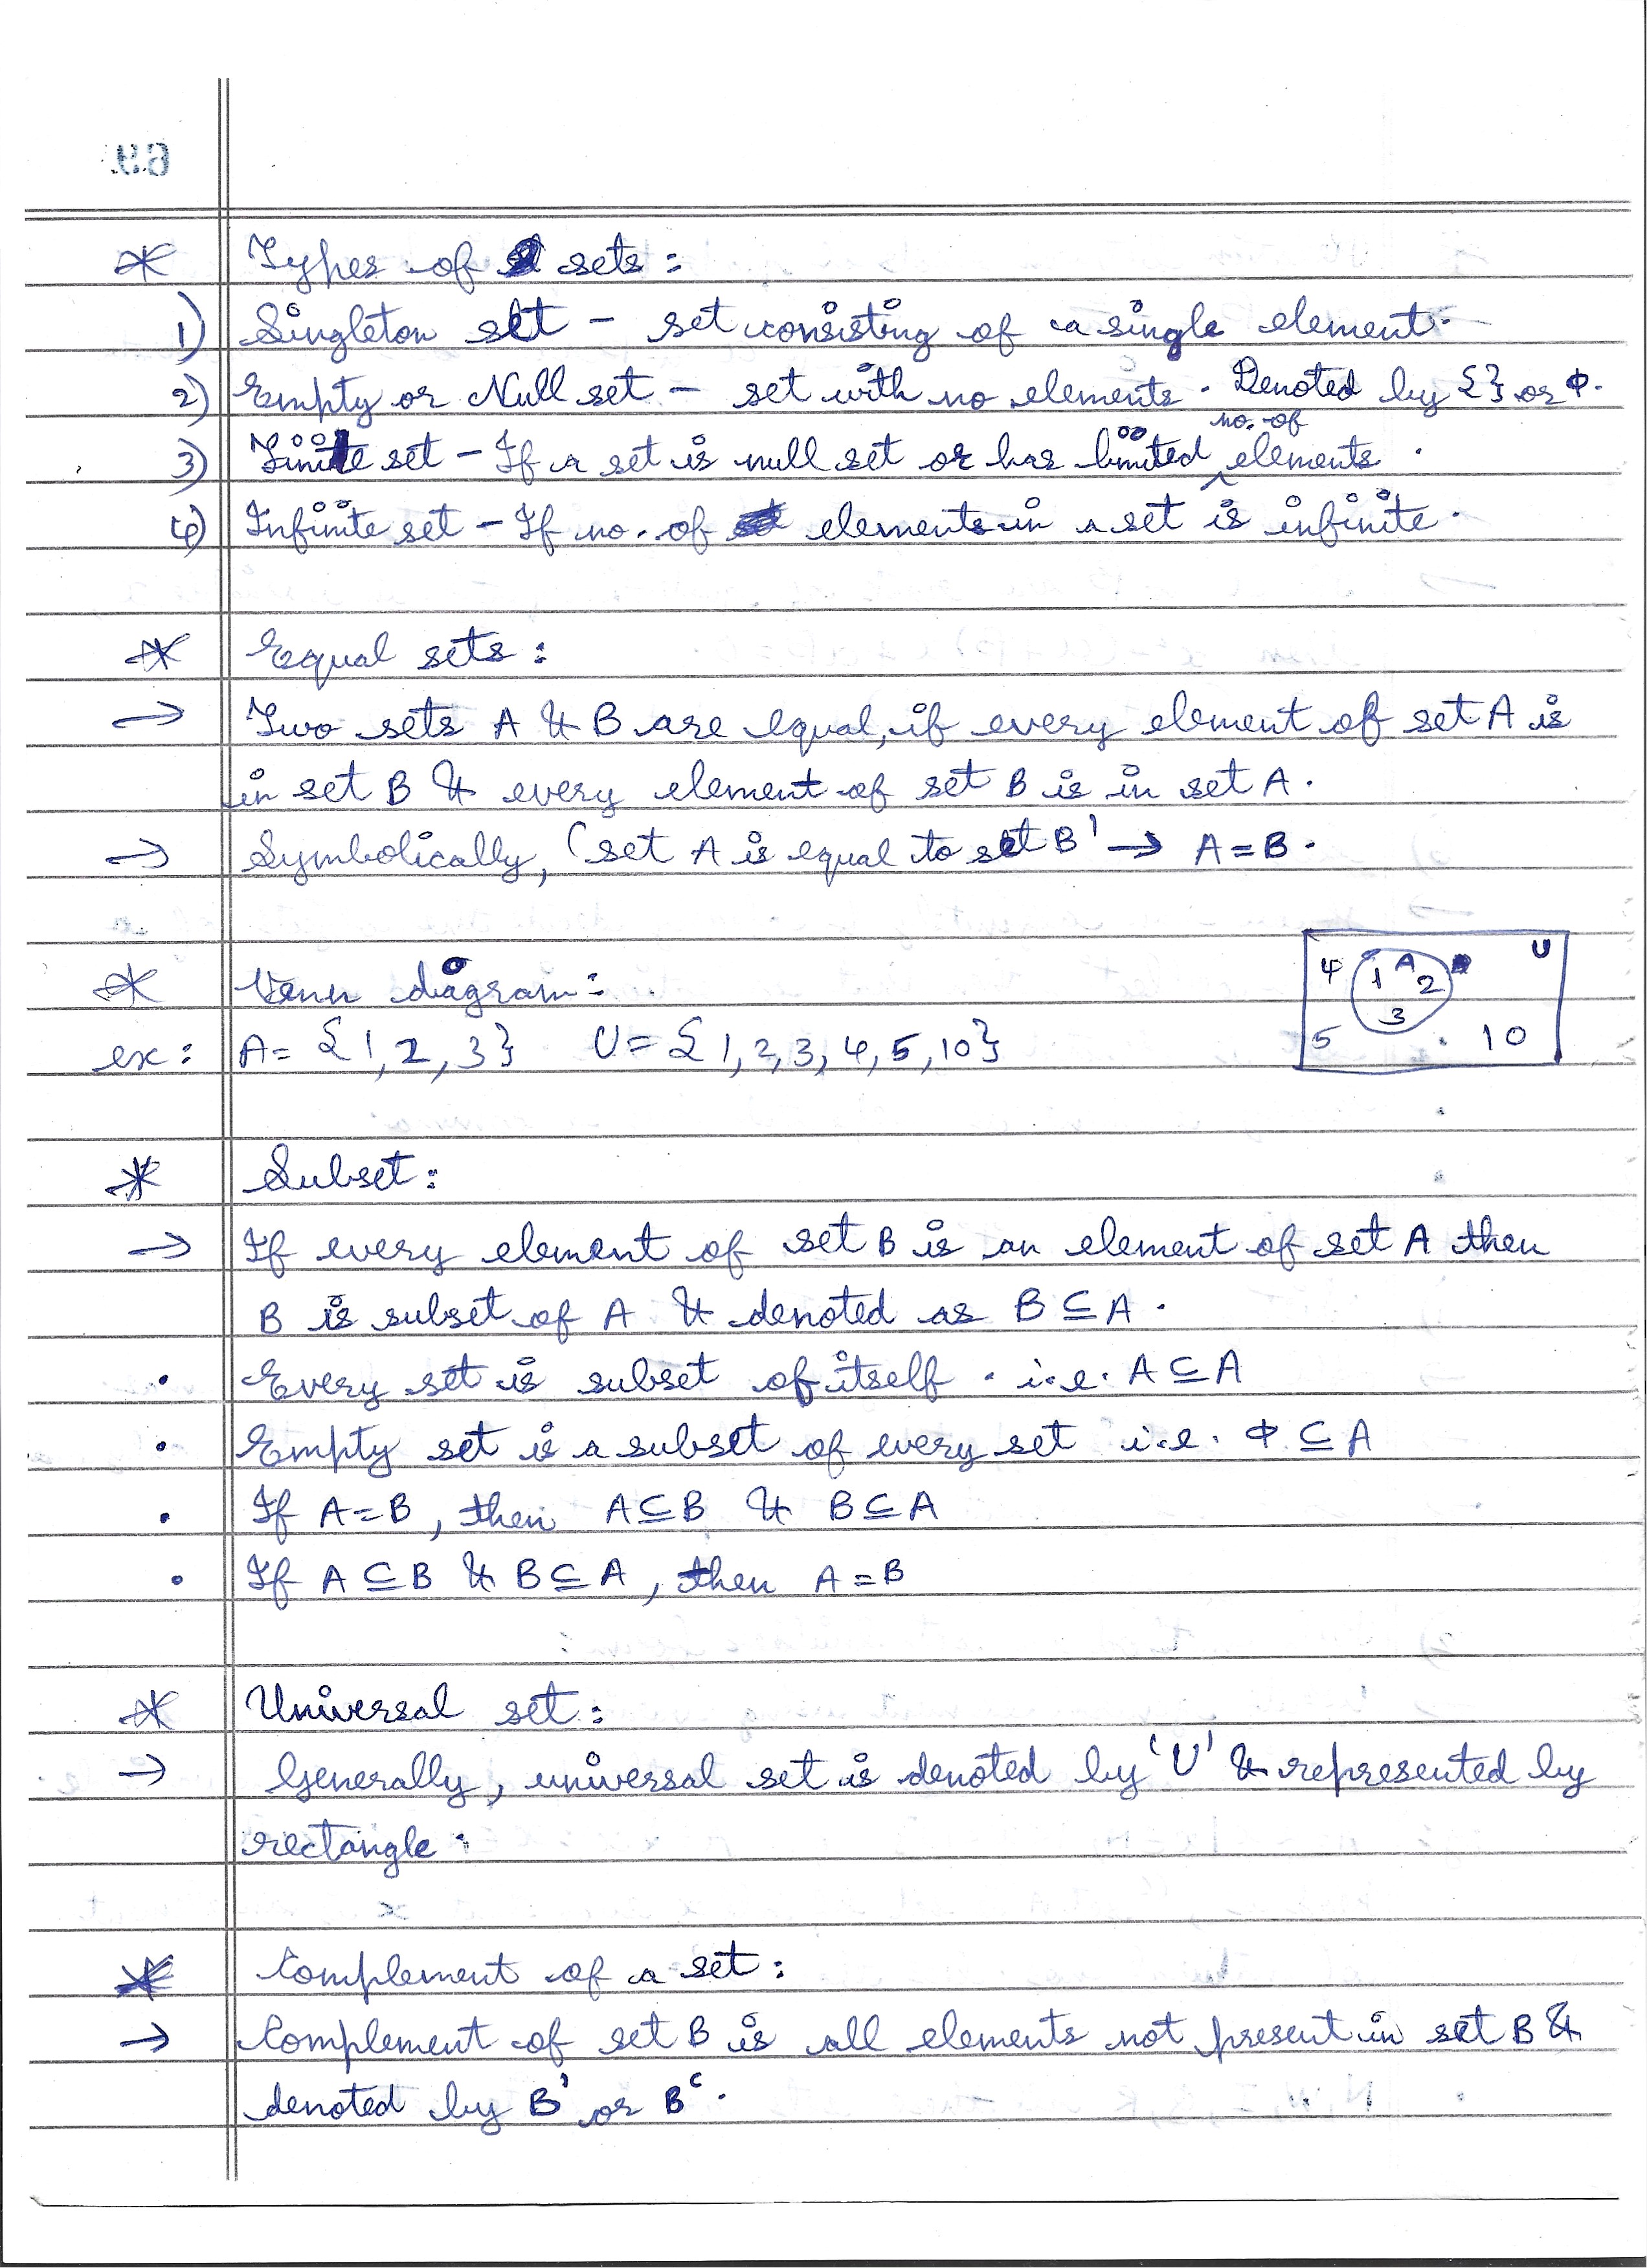 * Types of sets :
1) Singleton set - set consisting of a single element.
2) Empty or Null set - set with no elements. Denoted by {} or Φ.
3) Finite set - If a set is null set or has limited no. of elements.
4) Infinite set - If no. of elements in a set is infinite.
* Equal sets :
→ Two sets A & B are equal, if every element of set A is
in set B & every element of set B is in set A.
→ Symbolically, 'set A is equal to set B' → A = B.
* Venn diagram :
ex : A = {1, 2, 3} U = {1, 2, 3, 4, 5, 10}
U
4 1 A 2
3
5 10
* Subset :
→ If every element of set B is an element of set A then
B is subset of A & denoted as B ⊆ A.
• Every set is subset of itself. i.e. A ⊆ A
• Empty set is a subset of every set i.e. Φ ⊆ A
• If A = B, then A ⊆ B & B ⊆ A
• If A ⊆ B & B ⊆ A, then A = B
* Universal set :
→ Generally, universal set is denoted by 'U' & represented by
rectangle.
* Complement of a set :
→ Complement of set B is all elements not present in set B &
denoted by B' or Bᶜ.